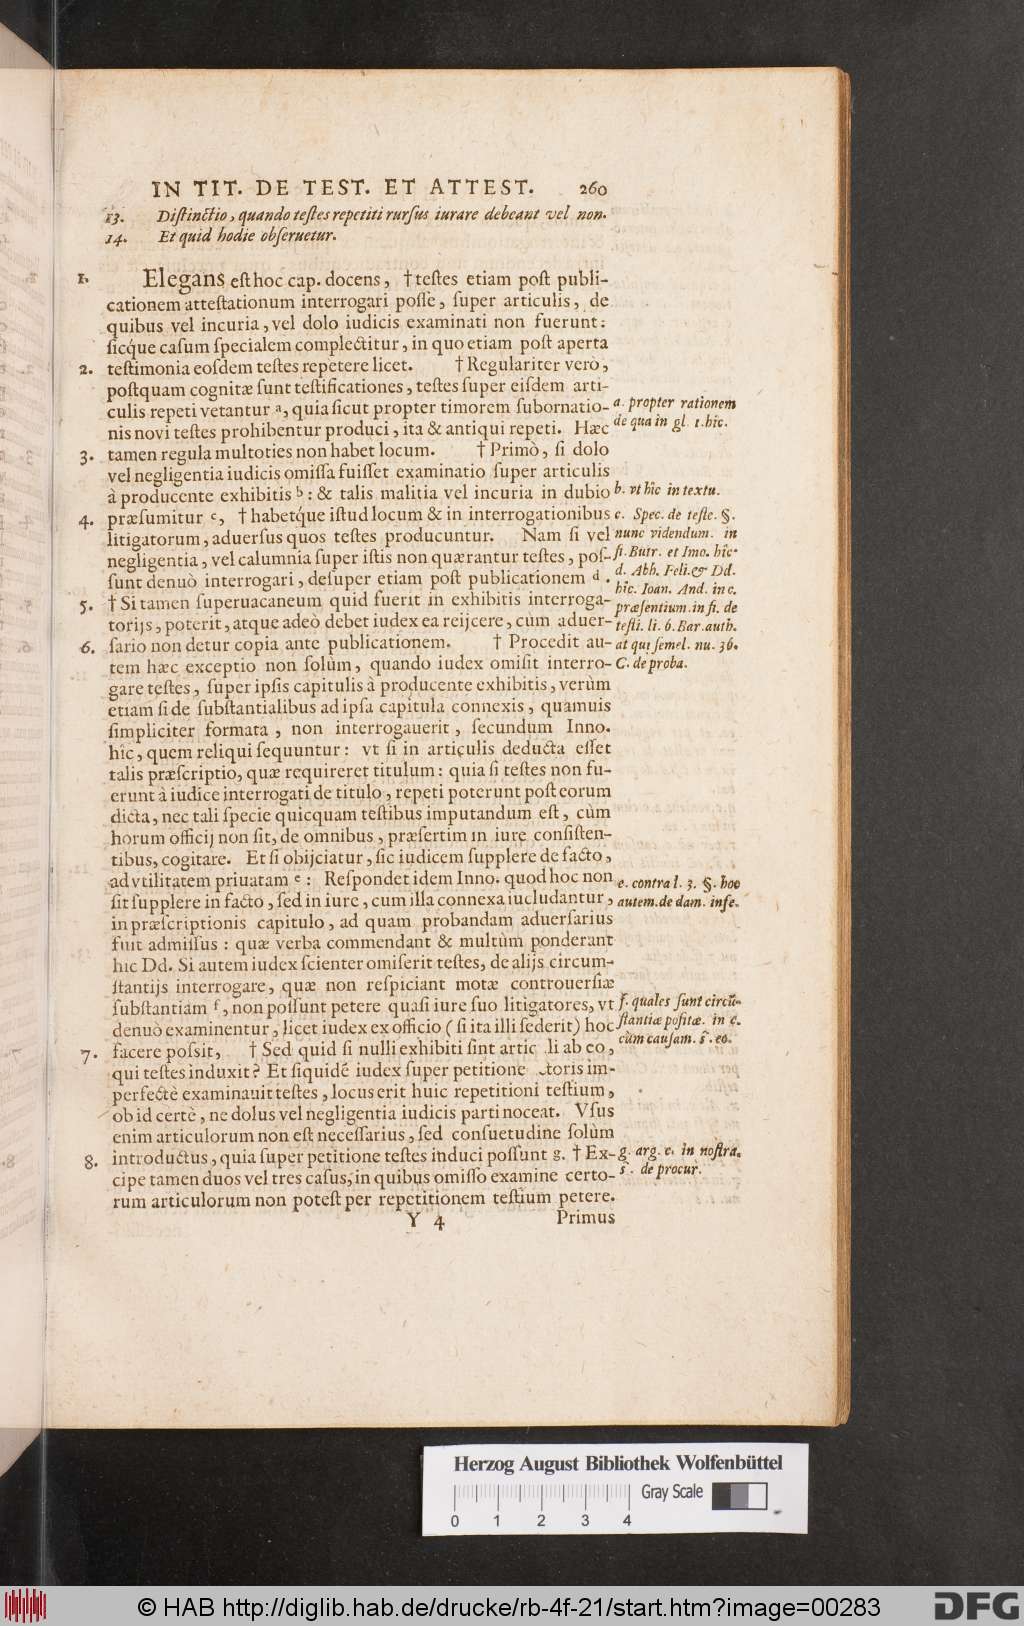 IN TIT. DE TEST. ET ATTEST. 260
13. Distinctio, quando testes repetiti rursus iurare debeant vel non.
14. Et quid hodie obseruetur.
1. Elegans est hoc cap. docens, † testes etiam post publi-
cationem attestationum interrogari posse, super articulis, de
quibus vel incuria, vel dolo iudicis examinati non fuerunt:
sicq́ue casum specialem complectitur, in quo etiam post aperta
2. testimonia eosdem testes repetere licet. † Regulariter verò,
postquam cognitæ sunt testificationes, testes super eisdem arti-
culis repeti vetantur a, quia sicut propter timorem subornatio-
nis novi testes prohibentur produci, ita & antiqui repeti. Hæc
3. tamen regula multoties non habet locum. † Primò, si dolo
vel negligentia iudicis omissa fuisset examinatio super articulis
à producente exhibitis b: & talis malitia vel incuria in dubio
4. præsumitur c, † habetq́ue istud locum & in interrogationibus
litigatorum, aduersus quos testes producuntur. Nam si vel
negligentia, vel calumnia super istis non quærantur testes, pos-
sunt denuò interrogari, desuper etiam post publicationem d.
5. † Si tamen superuacaneum quid fuerit in exhibitis interroga-
torijs, poterit, atque adeò debet iudex ea reijcere, cùm aduer-
6. sario non detur copia ante publicationem. † Procedit au-
tem hæc exceptio non solùm, quando iudex omisit interro-
gare testes, super ipsis capitulis à producente exhibitis, verùm
etiam si de substantialibus ad ipsa capitula connexis, quamuis
simpliciter formata, non interrogauerit, secundum Inno.
hîc, quem reliqui sequuntur: vt si in articulis deducta esset
talis præscriptio, quæ requireret titulum: quia si testes non fu-
erunt à iudice interrogati de titulo, repeti poterunt post eorum
dicta, nec tali specie quicquam testibus imputandum est, cùm
horum officij non sit, de omnibus, præsertim in iure consisten-
tibus, cogitare. Et si obijciatur, sic iudicem supplere de facto,
ad vtilitatem priuatam e: Respondet idem Inno. quod hoc non
sit supplere in facto, sed in iure, cum illa connexa iucludantur,
in præscriptionis capitulo, ad quam probandam aduersarius
fuit admissus: quæ verba commendant & multùm ponderant
hic Dd. Si autem iudex scienter omiserit testes, de alijs circum-
stantijs interrogare, quæ non respiciant motæ controuersiæ
substantiam f, non possunt petere quasi iure suo litigatores, vt
denuò examinentur, licet iudex ex officio (si ita illi sederit) hoc
7. facere possit, † Sed quid si nulli exhibiti sint artic li ab eo,
qui testes induxit? Et siquidé iudex super petitione ctoris im-
perfectè examinauit testes, locus erit huic repetitioni testium,
ob id certè, ne dolus vel negligentia iudicis parti noceat. Vsus
enim articulorum non est necessarius, sed consuetudine solùm
8. introductus, quia super petitione testes induci possunt g. † Ex-
cipe tamen duos vel tres casus, in quibus omisso examine certo-
rum articulorum non potest per repetitionem testium petere.
Y 4 Primus
a. propter rationem
de qua in gl. 1. hîc.
b. vt hîc in textu.
c. Spec. de teste. §.
nunc videndum. in
fi. Butr. et Imo. hîc.
d. Abb. Feli. & Dd.
hîc. Ioan. And. in c.
præsentium. in fi. de
testi. li. 6. Bar. auth.
at qui semel. nu. 36.
C. de proba.
e. contra l. 3. §. hoc
autem. de dam. infe.
f. quales sunt circũ-
stantiæ positæ. in c.
cùm causam. s̃. eo.
g. arg. c. in nostra.
s̃. de procur.
Herzog August Bibliothek Wolfenbüttel
Gray Scale
0 1 2 3 4
© HAB http://diglib.hab.de/drucke/rb-4f-21/start.htm?image=00283
DFG